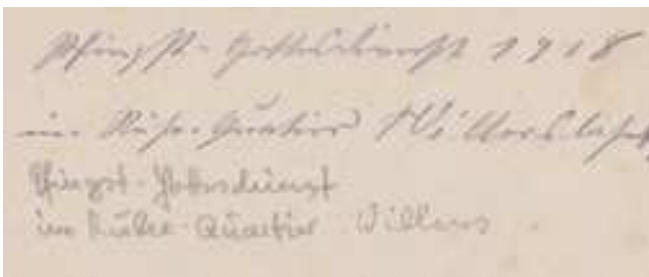 Pfingst-Gottesdienst 1918
im Ruhe-Quartier
Pfingst-Gottesdienst
im Ruhe-Quartier Willems